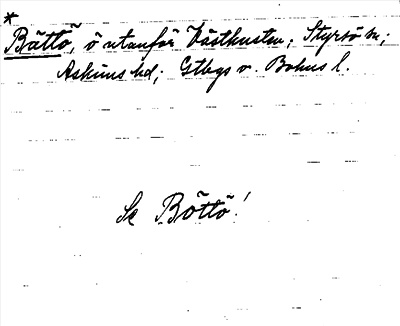 *
Bättö, ö utanför Västkusten; Styrsö sn;
Askims hd; Gtbgs o. Bohus l.
Se Böttö!